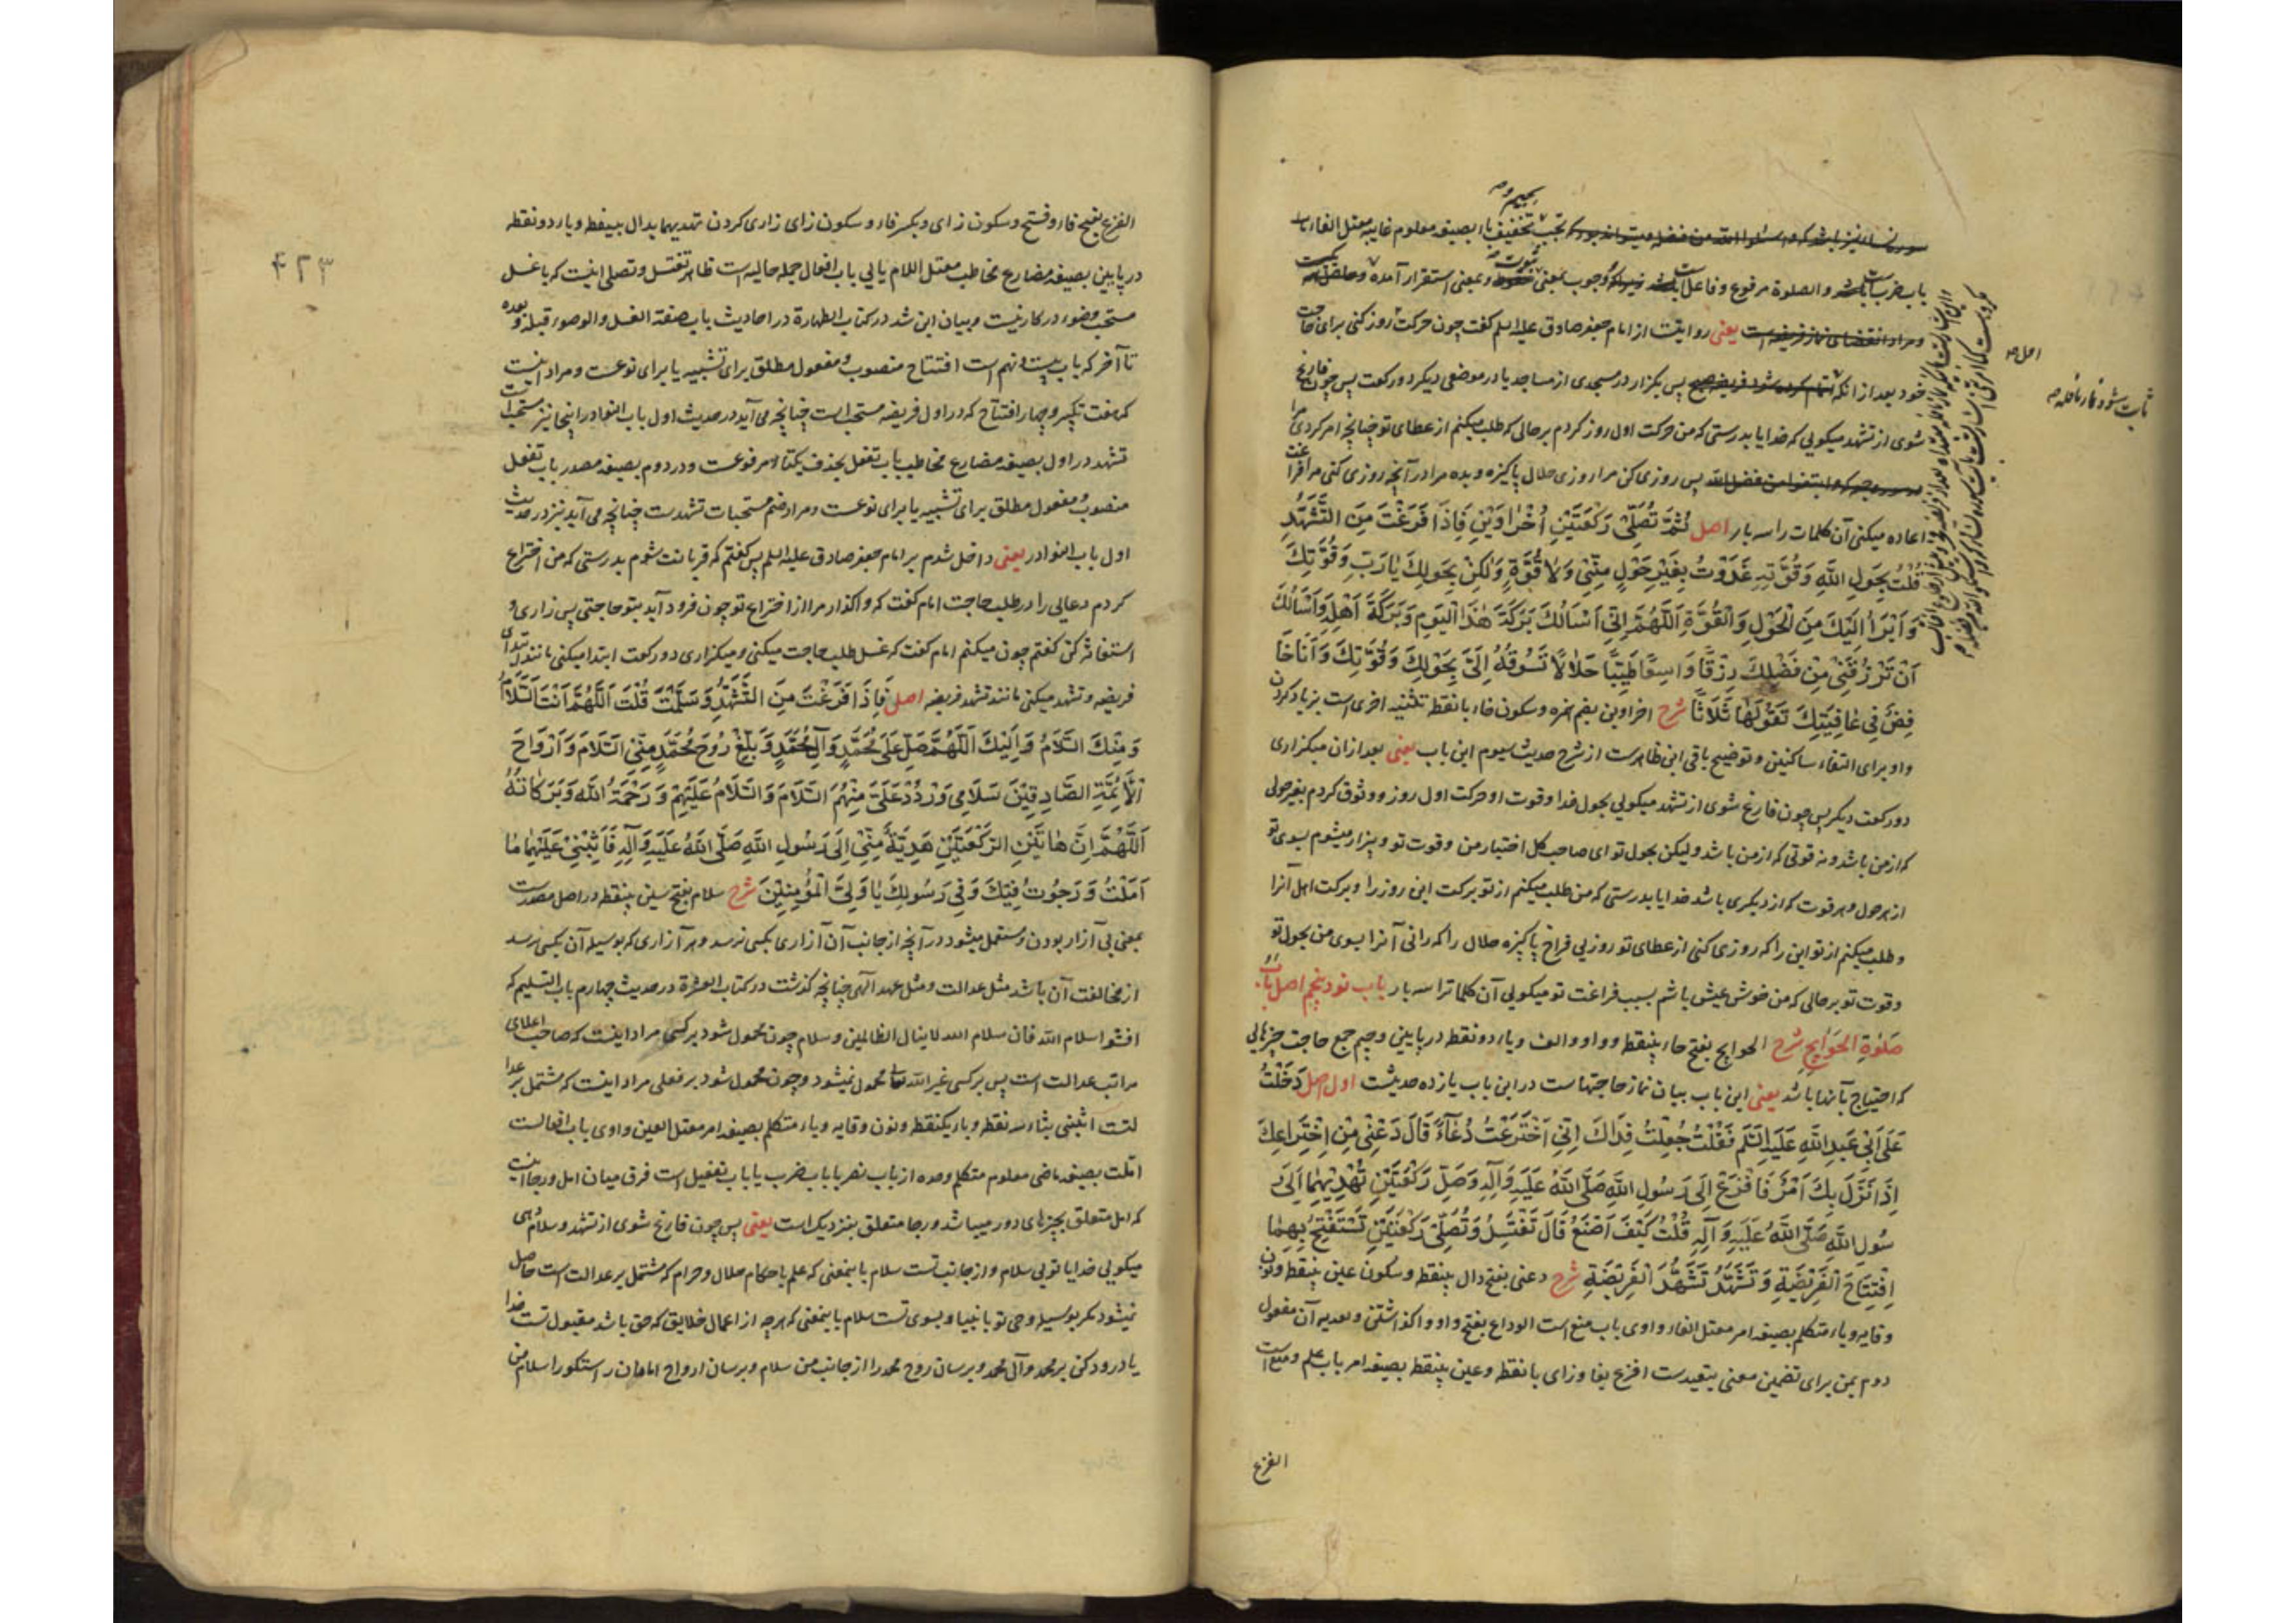 باب ضرب است والصلوة مرفوع وفاعل است
یعنی روایتست از امام جعفر صادق علیه السلم گفت چون حرکت روز کنی برای حاجت
خود بعد از انکه پس بگزار در مسجدی از مساجد یا در موضعی دیگر دو رکعت پس چون فارغ
شوی از تشهد میگویی که خدایا بدرستی که من حرکت اول روز کردم بر حالی که طلب میکنم از عطای تو چنانچه امر کردی مرا
پس روزی کن مرا روزی حلال پاکیزه و بده مرا در آنچه روزی کنی مرا فراغت
اعاده میکنی آن کلمات را سه بار اصل ثُمَّ تُصَلِّی رَکْعَتَیْنِ اُخْرَاوَیْنِ فَاِذَا فَرَغْتَ مِنَ التَّشَهُّدِ
قُلْتَ بِحَوْلِ اللَّهِ وَقُوَّتِهِ غَدَوْتُ بِغَیْرِ حَوْلٍ مِنِّی وَلَا قُوَّةٍ وَلٰکِنْ بِحَوْلِكَ یَا رَبِّ وَقُوَّتِكَ
وَاَبْرَأُ اِلَیْكَ مِنَ الْحَوْلِ وَالْقُوَّةِ اَللّٰهُمَّ اِنِّی اَسْاَلُكَ بَرَکَةَ هٰذَا الْیَوْمِ وَبَرَکَةَ اَهْلِهِ وَاَسْاَلُكَ
اَنْ تَرْزُقَنِی مِنْ فَضْلِكَ رِزْقًا وَاسِعًا طَیِّبًا حَلَالًا تَسُوقُهُ اِلَیَّ بِحَوْلِكَ وَقُوَّتِكَ وَاَنَا خَا
فِضٌ فِی عَافِیَتِكَ تَقُولُهَا ثَلَاثًا شرح اخراوین بضم همزه وسکون خاء با نقطه تثنیه اخری است بزیاد کردن
واو برای التقاء ساکنین وتوضیح باقی این ظاهرست از شرح حدیث سیوم این باب یعنی بعد از ان میگزاری
دو رکعت دیگر پس چون فارغ شوی از تشهد میگویی بحول خدا وقوت او حرکت اول روز ووثوق کردم بغیر حولی
که از من باشد ونه قوتی که از من باشد ولیکن بحول تو ای صاحب کل اختیار من وقوت تو وبیزار میشوم بسوی تو
از هر حول وهر قوت که از دیگری باشد خدایا بدرستی که من طلب میکنم از تو برکت این روز را وبرکت اهل آنرا
وطلب میکنم از تو این را که روزی کنی از عطای تو روزیی فراخ پاکیزه حلال را که رانی آنرا بسوی من بحول تو
وقوت تو بر حالی که من خوش عیش باشم بسبب فراغت تو میگویی آن کلمات را سه بار باب نود وپنجم اصل بَابُ
صَلٰوةِ الْحَوَایِجِ شرح الحوایج بفتح حاء بینقطه وواو والف ویاء دو نقطه در پایین وجیم جمع حاجت چیزهایی
که احتیاج بآنها باشد یعنی این باب بیان نماز حاجتهاست در این باب یازده حدیثست اول اصل دَخَلْتُ
عَلٰی اَبِی عَبْدِ اللَّهِ عَلَیْهِ السَّلَم فَقُلْتُ جُعِلْتُ فِدَاكَ اِنِّی اخْتَرَعْتُ دُعَآءً قَالَ دَعْنِی مِنِ اخْتِرَاعِكَ
اِذَا نَزَلَ بِكَ اَمْرٌ فَافْزَعْ اِلٰی رَسُولِ اللَّهِ صَلَّی اللَّهُ عَلَیْهِ وَآلِهِ وَصَلِّ رَکْعَتَیْنِ تُهْدِیهِمَا اِلٰی رَ
سُولِ اللَّهِ صَلَّی اللَّهُ عَلَیْهِ وَآلِهِ قُلْتُ کَیْفَ اَصْنَعُ قَالَ تَغْتَسِلُ وَتُصَلِّی رَکْعَتَیْنِ تَسْتَفْتِحُ بِهِمَا
اِفْتِتَاحَ الْفَرِیضَةِ وَتَشَهَّدُ تَشَهُّدَ الْفَرِیضَةِ شرح دعنی بفتح دال بینقطه وسکون عین بینقطه ونون
وقایه ویاء متکلم بصیغه امر معتل الفاء واوی باب منع است الوداع بفتح واو واگذاشتن وتعدیه آن مفعول
دوم بمن برای تضمین معنی تبعیدست افزع بفا وزای با نقطه وعین بینقطه بصیغه امر باب علم ومنع است
الفزع
الفزع بفتح فاء وفتح وسکون زای وبکسر فاء وسکون زای زاری کردن تهدیهما بدال بینقطه ویاء دو نقطه
در پایین بصیغه مضارع مخاطب معتل اللام یایی باب افعال جمله حالیه است ظاهر تغتسل وتصلی اینست که با غسل
مستحب وضوء در کار نیست وبیان این شد در کتاب الطهارة در احادیث باب صفة الغسل والوضوء قبله وبعده
تا آخر که باب بیست ونهم است افتتاح منصوب ومفعول مطلق برای تشبیه یا برای نوعست ومراد اینست
که هفت تکبیر وچهار افتتاح که در اول فریضه مستحب است چنانچه می آید در حدیث اول باب النوادر اینجا نیز مستحب است
تشهد در اول بصیغه مضارع مخاطب باب تفعل بحذف یکتا مرفوعست ودر دوم بصیغه مصدر باب تفعل
منصوب ومفعول مطلق برای تشبیه یا برای نوعست ومراد ضم مستحبات تشهدست چنانچه می آید نیز در حدیث
اول باب النوادر یعنی داخل شدم بر امام جعفر صادق علیه السلم پس گفتم که قربانت شوم بدرستی که من اختراع
کردم دعایی را در طلب حاجت امام گفت که واگذار مرا از اختراع تو چون فرود آید بتو حاجتی پس زاری و
استغاثه کن گفتم چون میکنم امام گفت که غسل طلب حاجت میکنی ومیگزاری دو رکعت ابتدا میکنی مانند ابتدای
فریضه وتشهد میکنی مانند تشهد فریضه اصل فَاِذَا فَرَغْتَ مِنَ التَّشَهُّدِ وَسَلَّمْتَ قُلْتَ اَللّٰهُمَّ اَنْتَ السَّلَامُ
وَمِنْكَ السَّلَامُ وَاِلَیْكَ اَللّٰهُمَّ صَلِّ عَلٰی مُحَمَّدٍ وَآلِ مُحَمَّدٍ وَبَلِّغْ رُوحَ مُحَمَّدٍ مِنِّی السَّلَامَ وَاَرْوَاحَ
الْاَئِمَّةِ الصَّادِقِینَ سَلَامِی وَرُدَّ عَلَیَّ مِنْهُمُ السَّلَامَ وَالسَّلَامُ عَلَیْهِمْ وَرَحْمَةُ اللَّهِ وَبَرَکَاتُهُ
اَللّٰهُمَّ اِنَّ هَاتَیْنِ الرَّکْعَتَیْنِ هَدِیَّةٌ مِنِّی اِلٰی رَسُولِ اللَّهِ صَلَّی اللَّهُ عَلَیْهِ وَآلِهِ فَاَثِبْنِی عَلَیْهِمَا مَا
اَمَلْتُ وَرَجَوْتُ فِیكَ وَفِی رَسُولِكَ یَا وَلِیَّ الْمُؤْمِنِینَ شرح سلام بفتح سین بینقطه در اصل مصدرست
بمعنی بی آزار بودن ومستعمل میشود در آنچه از جانب آن آزاری بکسی نرسد وهر آزاری که بوسیله آن بکسی نرسد
از مخالفت آن باشد مثل عدالت ومثل عهد الهی چنانچه گذشت در کتاب العشرة در حدیث چهارم باب التسلیم که
افشوا سلام الله فان سلام الله لا ینال الظالمین وسلام چون محمول شود بر کسی مراد اینست که صاحب اعلای
مراتب عدالت است پس بر کسی غیر الله تعالی محمول نمیشود وچون محمول شود بر فعلی مراد اینست که مشتمل بر عدا
لتست اثبنی بثاء سه نقطه وباء یکنقطه ونون وقایه ویاء متکلم بصیغه امر معتل العین واوی باب افعالست
املت بصیغه ماضی معلوم متکلم وحده از باب نصر یا باب ضرب یا باب تفعیل است فرق میان امل ورجا اینست
که امل متعلق بچیزهای دور میباشد ورجا متعلق بنزدیک است یعنی پس چون فارغ شوی از تشهد وسلام دهی
میگویی خدایا تویی سلام واز جانب تست سلام باینمعنی که علم باحکام حلال وحرام که مشتمل بر عدالت است حاصل
نمیشود مگر بوسیله وحی تو بانبیا وبسوی تست سلام باینمعنی که هر چه از اعمال خلایق که حق باشد مقبول تست خدا
یا درود کن بر محمد وآل محمد وبرسان روح محمد را از جانب من سلام وبرسان ارواح امامان راستگو را سلام من
۴۲۳